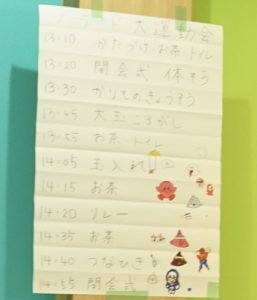 大運動会
13:10 かたづけ・お茶 トイレ
13:20 開会式 体そう
13:30 かりものきょうそう
13:45 大玉ころがし
13:55 お茶・トイレ
14:05 玉入れ
14:15 お茶
14:20 リレー
14:35 お茶
14:40 つなひき
14:55 閉会式